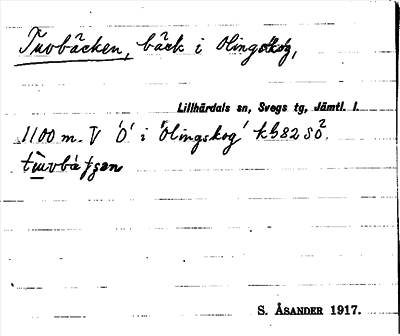 Tuvbäcken, bäck i Olingskog,
Lillhärdals sn, Svegs tg, Jämtl. l.
1100 m. V 'O' i 'Olingskog' kb 82 SÖ².
S. ÅSANDER 1917.